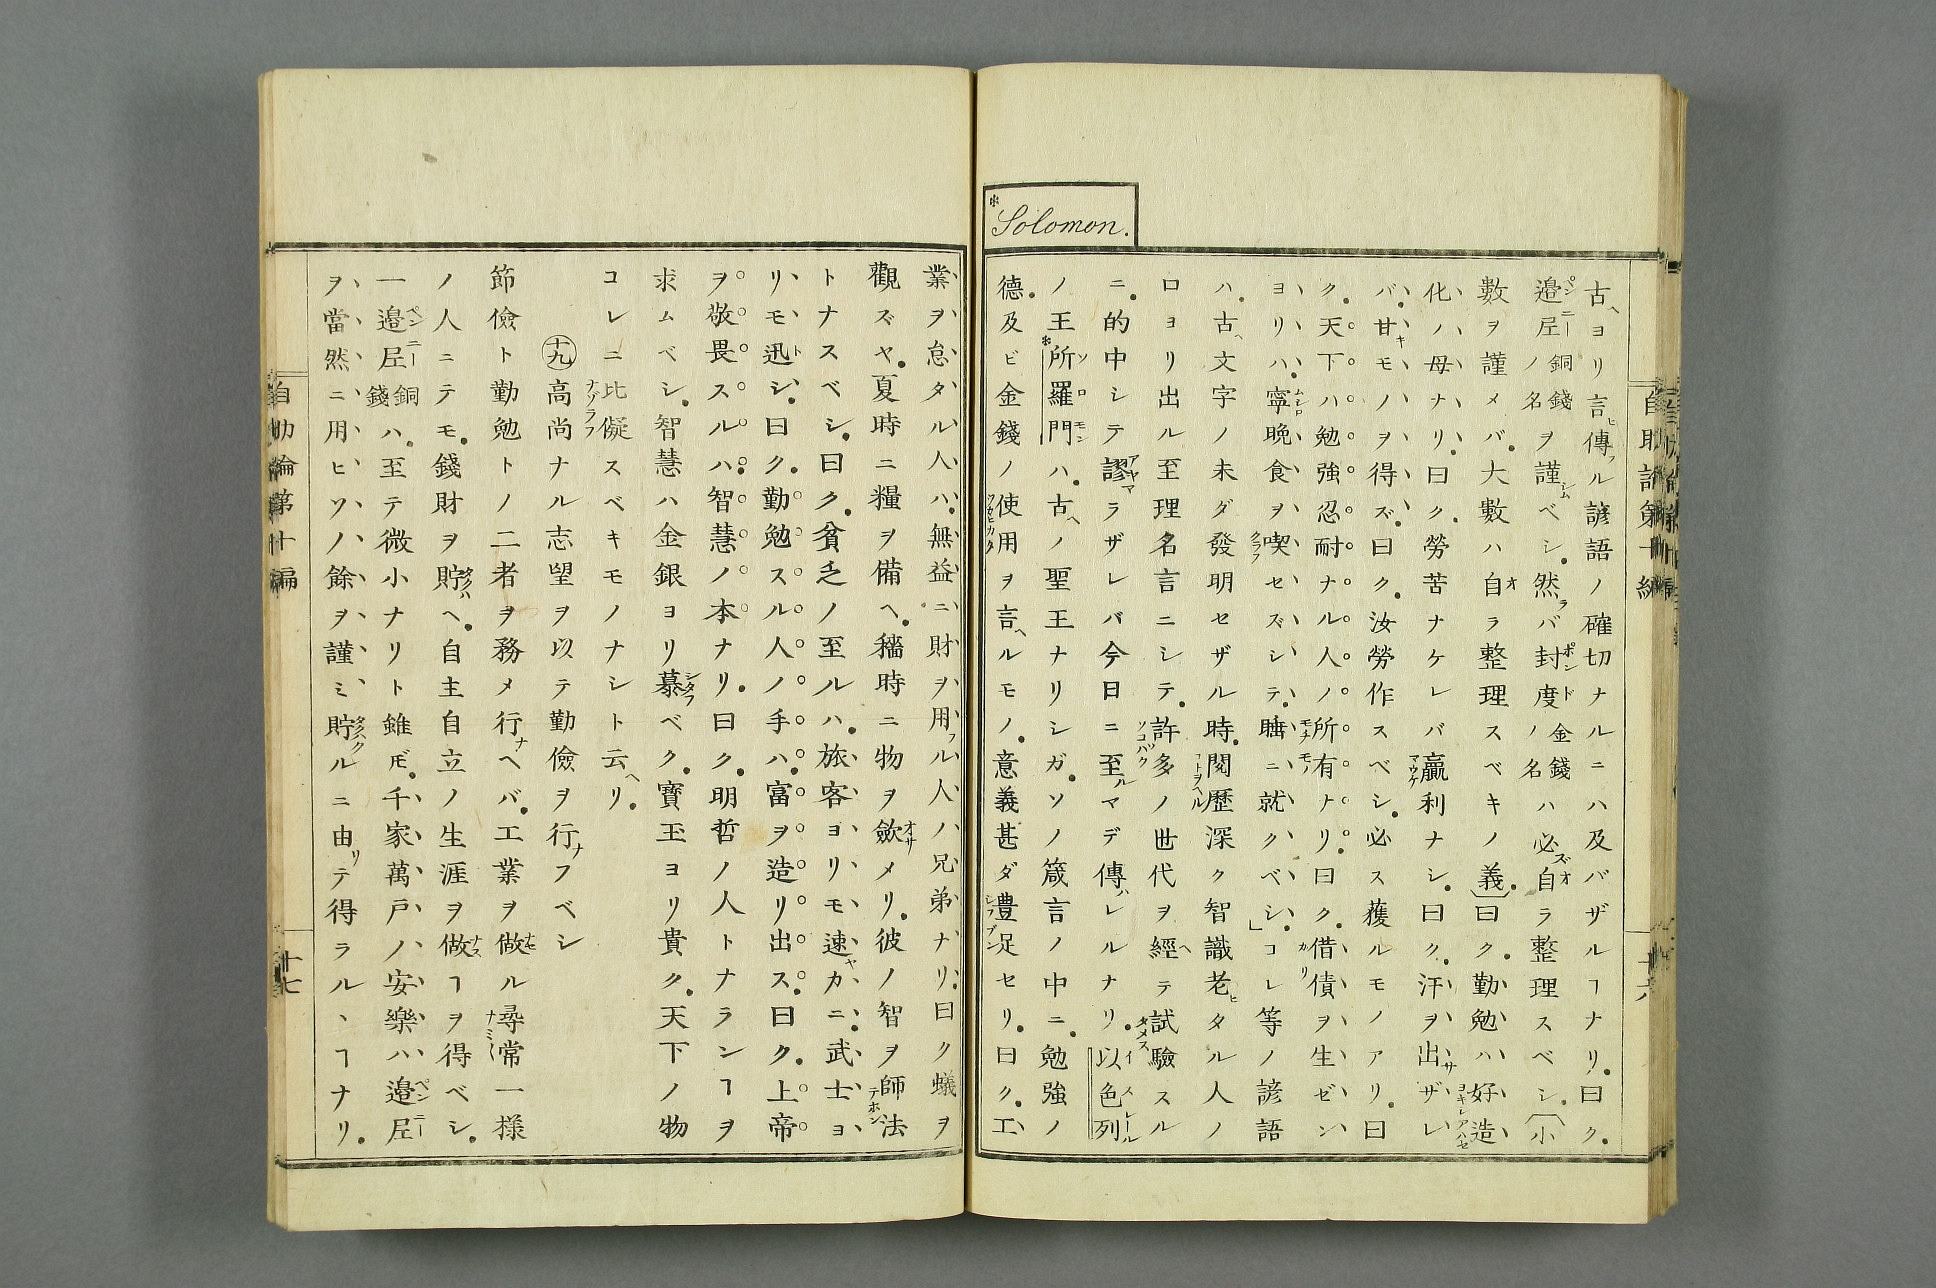 *Solomon.
古ヘヨリ言ヒ傳フル諺語ノ確切ナルニハ及バザルヿナリ曰ク
邉ペン𡰱ニー銅錢ノ名ヲ謹シムベシ然ラバ封ポン度ド金錢ノ名ハ必ズ自オラ整理スベシ(小
數ヲ謹メバ大數ハ自オラ整理スベキノ義)曰ク勤勉ハ好造
化ノ母ナリ曰ク勞苦ナケレバ贏マウケ利ナシ曰ク汗ヲ出サザレ
バ甘キモノヲ得ズ曰ク汝勞作スベシ必ス獲ルモノアリ曰
ク天下ハ勉強忍耐ナル人ノ所モチ有モノナリ曰ク借カリ債ヲ生ゼン
ヨリハ寧ムシロ晩食ヲ喫クラフセズシテ睡ニ就クベシ」コレ等ノ諺語
ハ古ヘ文字ノ未ダ發明セザル時閲歴深ク智識老ヒタル人ノ
口ヨリ出ル至理名言ニシテ許ソコ多バクノ世代ヲ經ヘテ試タメス驗スル
ニ的中シテ謬アヤマラザレバ今日ニ至ルマデ傳ハレルナリ以イ色スレー列ル
ノ王*所ソ羅ロ門モンハ古ヘノ聖王ナリシガソノ箴言ノ中ニ勉強ノ
德及ビ金錢ノ使ツカヒカタ用ヲ言ヘルモノ意義甚ダ豊足セリ曰ク工
業ヲ怠タル人ハ無益ニ財ヲ用フル人ハ兄弟ナリ曰ク蟻ヲ
觀ズヤ夏時ニ糧ヲ備ヘ穡時ニ物ヲ歛オサメリ彼ノ智ヲ師テホン法
トナスベシ曰ク貧乏ノ至ルハ旅客ヨリモ速ヤカニ武士ヨ
リモ迅トシ曰ク勤勉スル人ノ手ハ富ヲ造リ出ス曰ク上帝
ヲ敬畏スルハ智慧ノ本ナリ曰ク明哲ノ人トナランヿヲ
求ムベシ智慧ハ金銀ヨリ慕シタフベク寶玉ヨリ貴ク天下ノ物
コレニ比ナゾラフ儗スベキモノナシト云ヘリ
十九高尚ナル志望ヲ以テ勤儉ヲ行ナフベシ
節儉ト勤勉トノ二者ヲ務メ行ナヘバ工業ヲ做ナセル尋ナミ常一樣
ノ人ニテモ錢財ヲ貯タクハヘ自主自立ノ生涯ヲ做ナスヿヲ得ベシ
一邉ペン𡰱ニー銅錢ハ至テ微小ナリト雖𪜈千家萬戸ノ安樂ハ邉ペン𡰱ニー
ヲ當然ニ用ヒソノ餘ヲ謹ミ貯タクハフルニ由リテ得ラルヽヿナリ
自助論第十編
十六
自助論第十編
十七